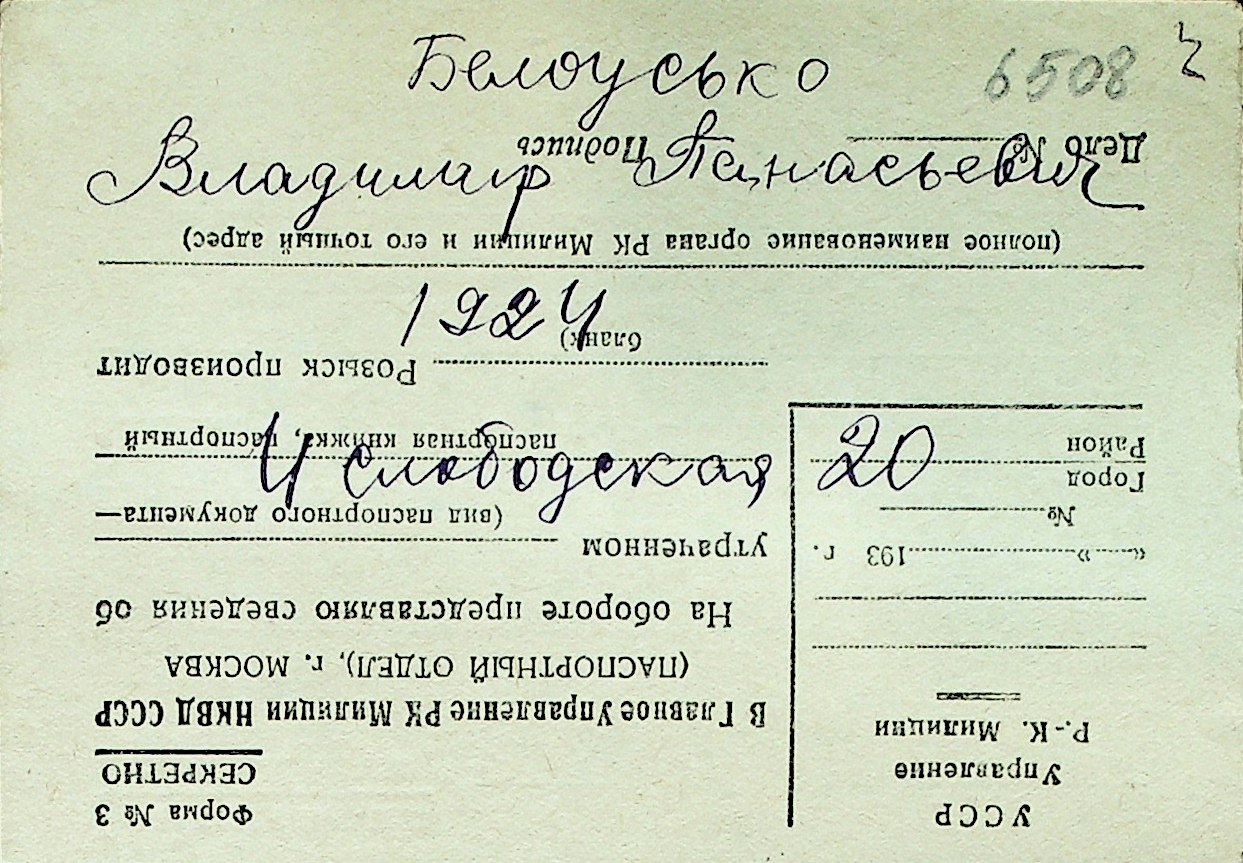 Белоусько 6508
Владимир Панасьевич
1924
Ч Слободская 20
УССР
Управление
Р.-К. Милиции
«......»..............193 г.
№
Город
Район
Форма № 3
СЕКРЕТНО
В Главное Управление РК Милиции НКВД СССР
(ПАСПОРТНЫЙ ОТДЕЛ), г. МОСКВА
На обороте представляю сведения об
утраченном
(вид паспортного документа—
паспортная книжка, паспортный
бланк)
Розыск производит
(полное наименование органа РК Милиции и его точный адрес)
Дело № Подпись